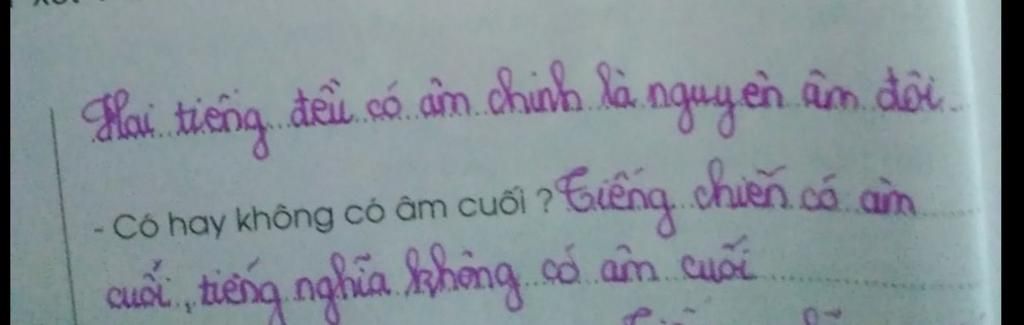 Hai tiếng đều có âm chính là nguyên âm đôi
- Có hay không có âm cuối ? Tiếng chiến có âm
cuối, tiếng nghĩa không có âm cuối